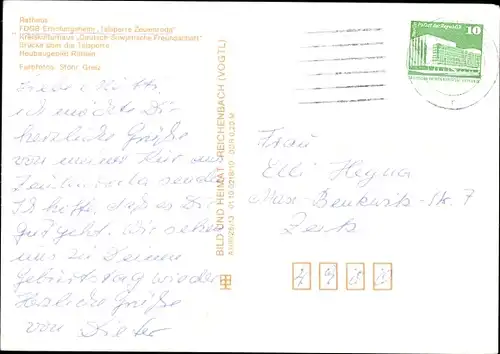 Rathaus
FDGB Erholungsheim „Talsperre Zeulenroda"
Kreiskulturhaus „Deutsch-Sowjetische Freundschaft"
Brücke über die Talsperre
Neubaugebiet Rötlein
Farbfotos: Stöhr, Greiz
Liebe Mutti,
ich möchte Dir
herzliche Grüße
von meiner Kur aus
Zeulenroda senden.
Ich hoffe, daß es Dir
gut geht. Wir sehen
uns zu Deinem
Geburtstag wieder
Herzliche Grüße
von Dieter
BILD UND HEIMAT REICHENBACH (VOGTL)
01 10 0218/10 DDR 0,25 M
10
Frau
Elli Heyna
Max-Benkwitz-Str. 7
Zeitz
4 9 0 0